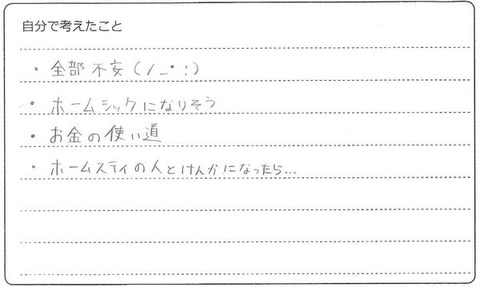 自分で考えたこと
・全部不安(ノ_・;)
・ホームシックになりそう
・お金の使い道
・ホームスティの人とけんかになったら...